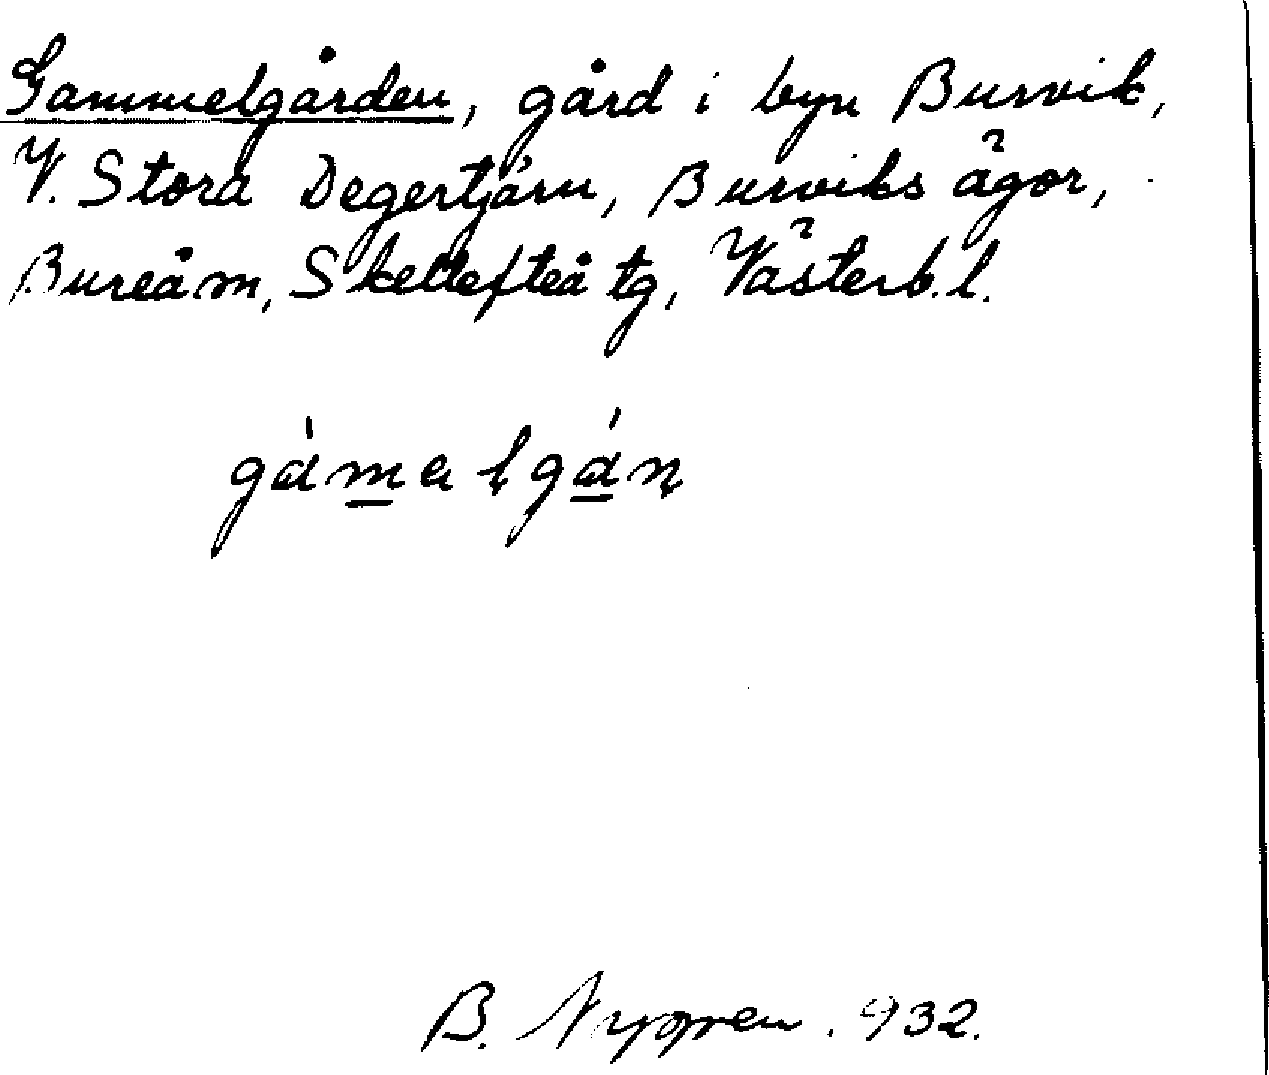 Gammelgården, gård i byn Burvik,
V. Stora Degertjärn, Burviks ägor,
Bureå sn, Skellefteå tg, Västerb. l.
gàmalgán
B. Nygren. 932.